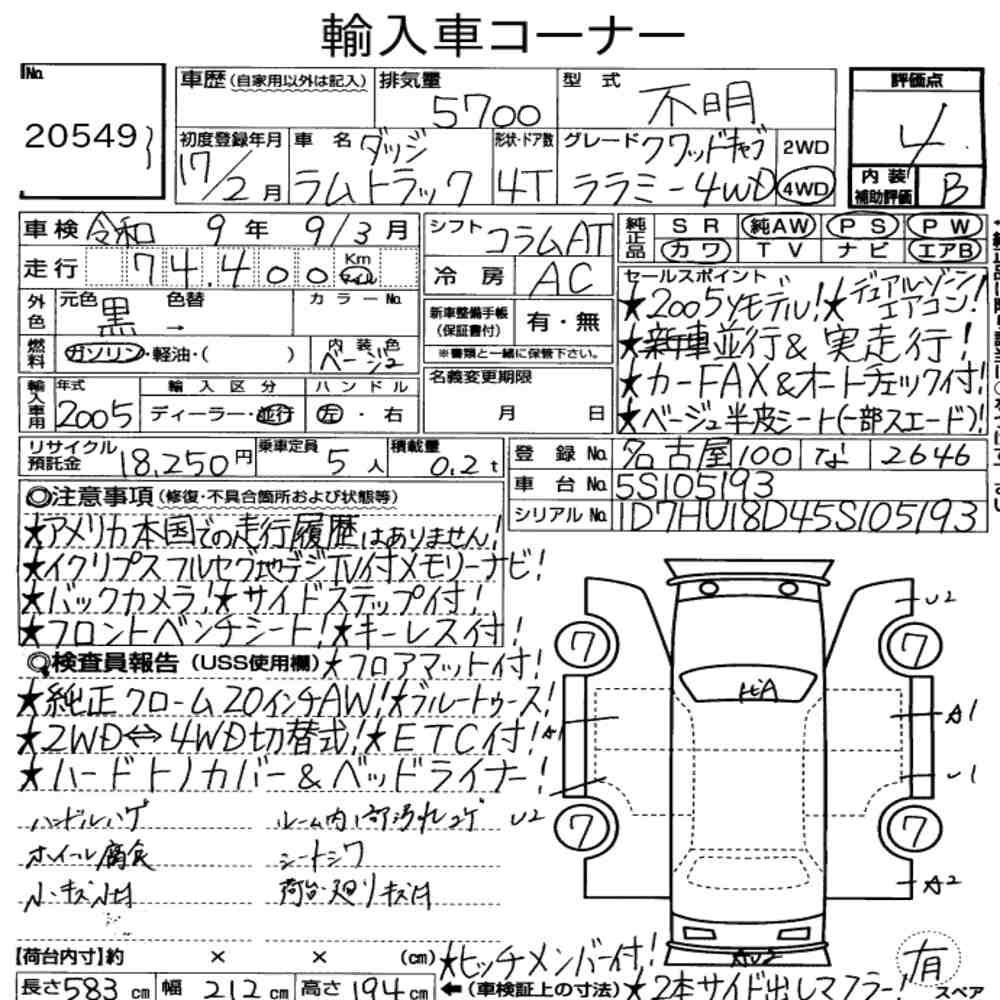 輸入車コーナー
No.
20549
車歴(自家用以外は記入) 排気量 5700 型式 不明
評価点 4
内装補助評価 B
初度登録年月 17/2月 車名 ダッジ ラムトラック 形状・ドア数 4T グレード クワッドキャブ ララミー4WD 2WD 4WD
車検 令和 9年 9/3月
シフト コラムAT
純正品 SR 純AW PS PW
カワ TV ナビ エアB
走行 74,400 Km マイル
冷房 AC
外色 元色 黒 色替 → カラーNo.
新車整備手帳(保証書付) 有・無
※書類と一緒に保管下さい。
燃料 ガソリン・軽油・( ) 内装色 ベージュ
セールスポイント
★2005yモデル!★デュアルゾーンエアコン!
★新車並行&実走行!
★カーFAX&オートチェック付!
★ベージュ半皮シート(一部スエード)!
輸入車用 年式 2005 輸入区分 ディーラー・並行 ハンドル 左・右
名義変更期限 月 日
リサイクル預託金 18,250円 乗車定員 5人 積載量 0.2t
登録No. 名古屋 100 な 2646
車台No. 5S105193
シリアルNo. 1D7HU18D45S105193
◎注意事項(修復・不具合箇所および状態等)
★アメリカ本国での走行履歴はありません!
★イクリプスフルセグ地デジTV付メモリーナビ!
★バックカメラ!★サイドステップ付!
★フロントベンチシート!★キーレス付!
◎検査員報告(USS使用欄)★フロアマット付!
★純正クローム20インチAW!★ブルートゥース!
★2WD⇔4WD切替式!★ETC付!
★ハードトノカバー&ベッドライナー!
ハンドルハゲ ルーム内部汚れコゲ
ホイール腐食 シートシワ
小キズ小凹 荷台廻りキズ凹
U2
7 7
ヒA
A1 A1
U1
U2
7 7
A2
AU2
【荷台内寸】約 × × (cm)
★ヒッチメンバー付!
長さ583cm 幅212cm 高さ194cm
←(車検証上の寸法)★2本サイド出しマフラー!
有 スペア